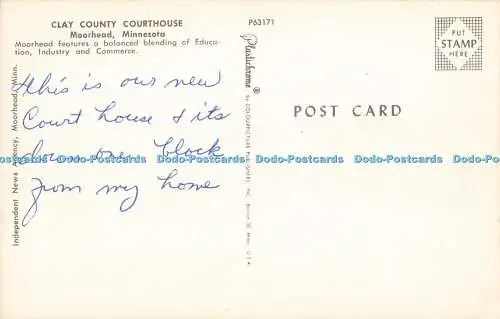 CLAY COUNTY COURTHOUSE
Moorhead, Minnesota
Moorhead features a balanced blending of Educa-
tion, Industry and Commerce.
this is our new
Court house & its
down one block
from my home
Independent News Agency, Moorhead, Minn.
P63171
Plastichrome ®
by COLOURPICTURE PUBLISHERS, INC. Boston 30, Mass., U.S.A.
PUT
STAMP
HERE
POST CARD
Dodo-Postcards Dodo-Postcards Dodo-Postcards Dodo-Postcards Dodo-Postcards